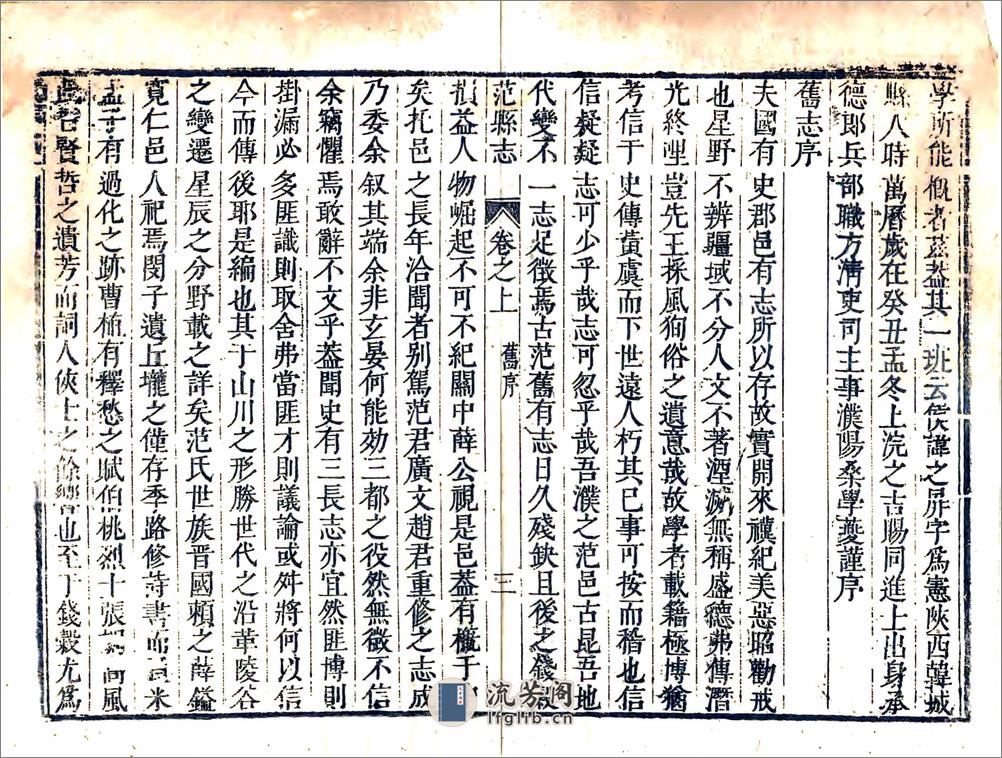 學所能佩者茲蓋其一班云侯諱之屏字爲憲陜西韓城
縣人時萬曆歲在癸丑孟冬上浣之吉賜同進士出身承
德郎兵部職方淸吏司主事濮陽桑學夔謹序
舊志序
夫國有史郡邑有志所以存故實開來禩紀美惡昭勸戒
也星野不辨疆域不分人文不著湮滅無稱盛德弗傳潛
光終湮豈先王採風狥俗之遺意哉故學者載籍極博猶
考信于史傳黃虞而下世遠人朽其巳事可按而稽也信
信疑疑志可少乎哉志可忽乎哉吾濮之范邑古昆吾地
代變不一志足徵焉古范舊有志日久殘缺且後之錢穀
范縣志 卷之上 舊序 三
損益人物崛起不可不紀關中薛公視是邑葢有槪于
矣托邑之長年洽聞者別駕范君廣文趙君重修之志成
乃委余叙其端余非玄晏何能効三都之役然無徵不信
余竊懼焉敢辭不文乎葢聞史有三長志亦宜然匪博則
掛漏必多匪識則取舍弗當匪才則議論或舛將何以信
今而傳後耶是編也其于山川之形勝世代之沿革陵谷
之變遷星辰之分野載之詳矣范氏世族晋國賴之薛鎰
寬仁邑人祀焉閔子遺丘壠之僅存季路修詩書而 米
孟子有過化之跡曹植有釋愁之賦伯桃烈士張 高風
眞昔賢哲之遺芳而詞人俠士之餘響也至于錢穀尤爲
流芳阁
lfglib.cn